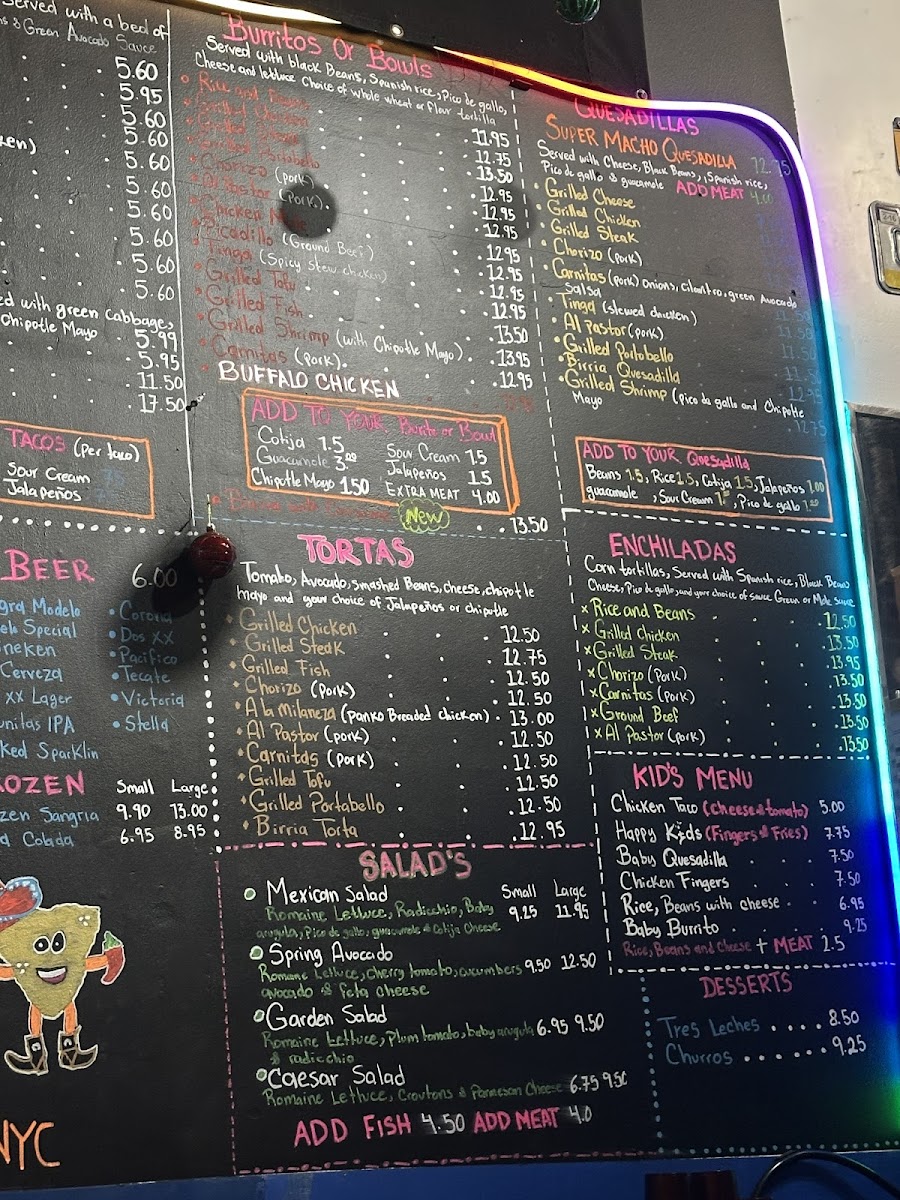 Served with a bed of
s & Green Avocado Sauce
5.60
5.95
5.60
5.60
ken)
5.60
5.60
5.60
5.60
5.60
5.60
ed with green Cabbage,
Chipotle Mayo
5.99
5.95
11.50
17.50
TACOS (Per taco)
Sour Cream
Jalapeños
BEER 6.00
gra Modelo • Corona
elo Special • Dos XX
neken • Pacifico
Cerveza • Tecate
xx Lager • Victoria
unitas IPA • Stella
ked Sparklin
OZEN Small Large
zen Sangria 9.90 13.00
a Colada 6.95 8.95
NYC
Burritos Or Bowls
Served with black Beans, Spanish rice, Pico de gallo,
Cheese and lettuce Choice of whole wheat or flour tortilla
Rice and Beans 11.95
Grilled Chicken 12.75
Grilled Steak 13.50
Grilled Portobello 12.95
Chorizo (pork) 12.95
Al Pastor (Pork) 12.95
Chicken Mole 12.95
Picadillo (Ground Beef) 12.95
Tinga (Spicy stew chicken) 12.95
Grilled Tofu 12.95
Grilled Fish 13.50
Grilled Shrimp (with Chipotle Mayo) 13.95
Carnitas (Pork) 12.95
BUFFALO CHICKEN
ADD TO YOUR Burrito or Bowl
Cotija 1.5 Sour Cream 1.5
Guacamole 3.00 Jalapeños 1.5
Chipotle Mayo 1.50 EXTRA MEAT 4.00
New 13.50
TORTAS
Tomato, Avocado, smashed Beans, cheese, chipotle
mayo and your choice of Jalapeños or chipotle
Grilled Chicken 12.50
Grilled Steak 12.75
Grilled Fish 12.50
Chorizo (Pork) 12.50
A la milaneza (panko Breaded chicken) 13.00
Al Pastor (pork) 12.50
Carnitas (pork) 12.50
Grilled Tofu 12.50
Grilled Portabello 12.50
Birria Torta 12.95
SALAD'S
Mexican Salad Small Large
Romaine Lettuce, Radicchio, Baby 9.25 11.95
arugula, Pico de gallo, guacamole & Cotija Cheese
Spring Avocado
Romaine Lettuce, cherry tomato, cucumbers 9.50 12.50
avocado & feta cheese
Garden Salad
Romaine Lettuce, Plum tomato, baby arugula 6.95 9.50
& radicchio
Caesar Salad
Romaine Lettuce, Croutons & Parmesan Cheese 6.75 9.50
ADD FISH 4.50 ADD MEAT 4.0
QUESADILLAS
SUPER MACHO QUESADILLA 12.75
Served with Cheese, Black Beans, Spanish rice,
Pico de gallo & guacamole ADD MEAT 4.00
• Grilled Cheese
• Grilled Chicken
• Grilled Steak
• Chorizo (pork)
• Carnitas (pork) onions, cilantro, green Avocado
Salsa
Tinga (stewed chicken)
• Al Pastor (pork)
• Grilled Portobello
• Birria Quesadilla
• Grilled Shrimp (pico de gallo and Chipotle
Mayo 12.75
ADD TO YOUR Quesadilla
Beans 1.5, Rice 1.5, Cotija 1.5, Jalapeños 1.00
guacamole, Sour Cream, Pico de gallo
ENCHILADAS
Corn tortillas, Served with Spanish rice, Black Beans
Cheese, Pico de gallo, and your choice of sauce Green or Mole Sauce
x Rice and Beans 12.50
x Grilled Chicken 13.50
x Grilled Steak 13.95
x Chorizo (Pork) 13.50
x Carnitas (pork) 13.50
x Ground Beef 13.50
x Al Pastor (pork) 13.50
KID'S MENU
Chicken Taco (Cheese & tomato) 5.00
Happy Kids (Fingers & Fries) 7.75
Baby Quesadilla 7.50
Chicken Fingers 7.50
Rice, Beans with cheese 6.95
Baby Burrito 9.25
Rice, Beans and Cheese + MEAT 2.5
DESSERTS
Tres Leches .... 8.50
Churros ...... 9.25